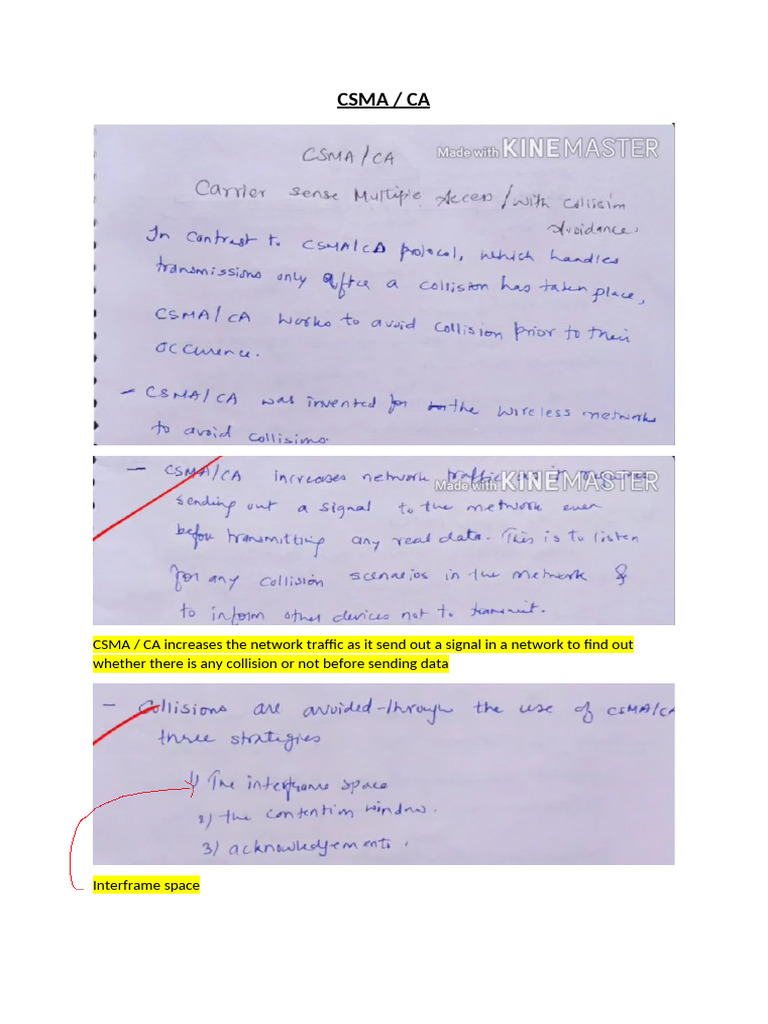 CSMA / CA
CSMA/CA
Made with KINEMASTER
Carrier sense Multiple Access/with Collision
Avoidance.
In Contrast to CSMA/CD protocol, which handles
transmissions only after a collision has taken place,
CSMA/CA works to avoid collision prior to their
occurence.
- CSMA/CA was invented for the wireless networks
to avoid collisions.
- CSMA/CA increases network traffic as it requires
Made with KINEMASTER
sending out a signal to the network even
before transmitting any real data. This is to listen
for any collision scenarios in the network &
to inform other devices not to transmit.
CSMA / CA increases the network traffic as it send out a signal in a network to find out
whether there is any collision or not before sending data
- Collisions are avoided through the use of CSMA/CA
three strategies
1) The interframe space
2) the contention window.
3) acknowledgements.
Interframe space